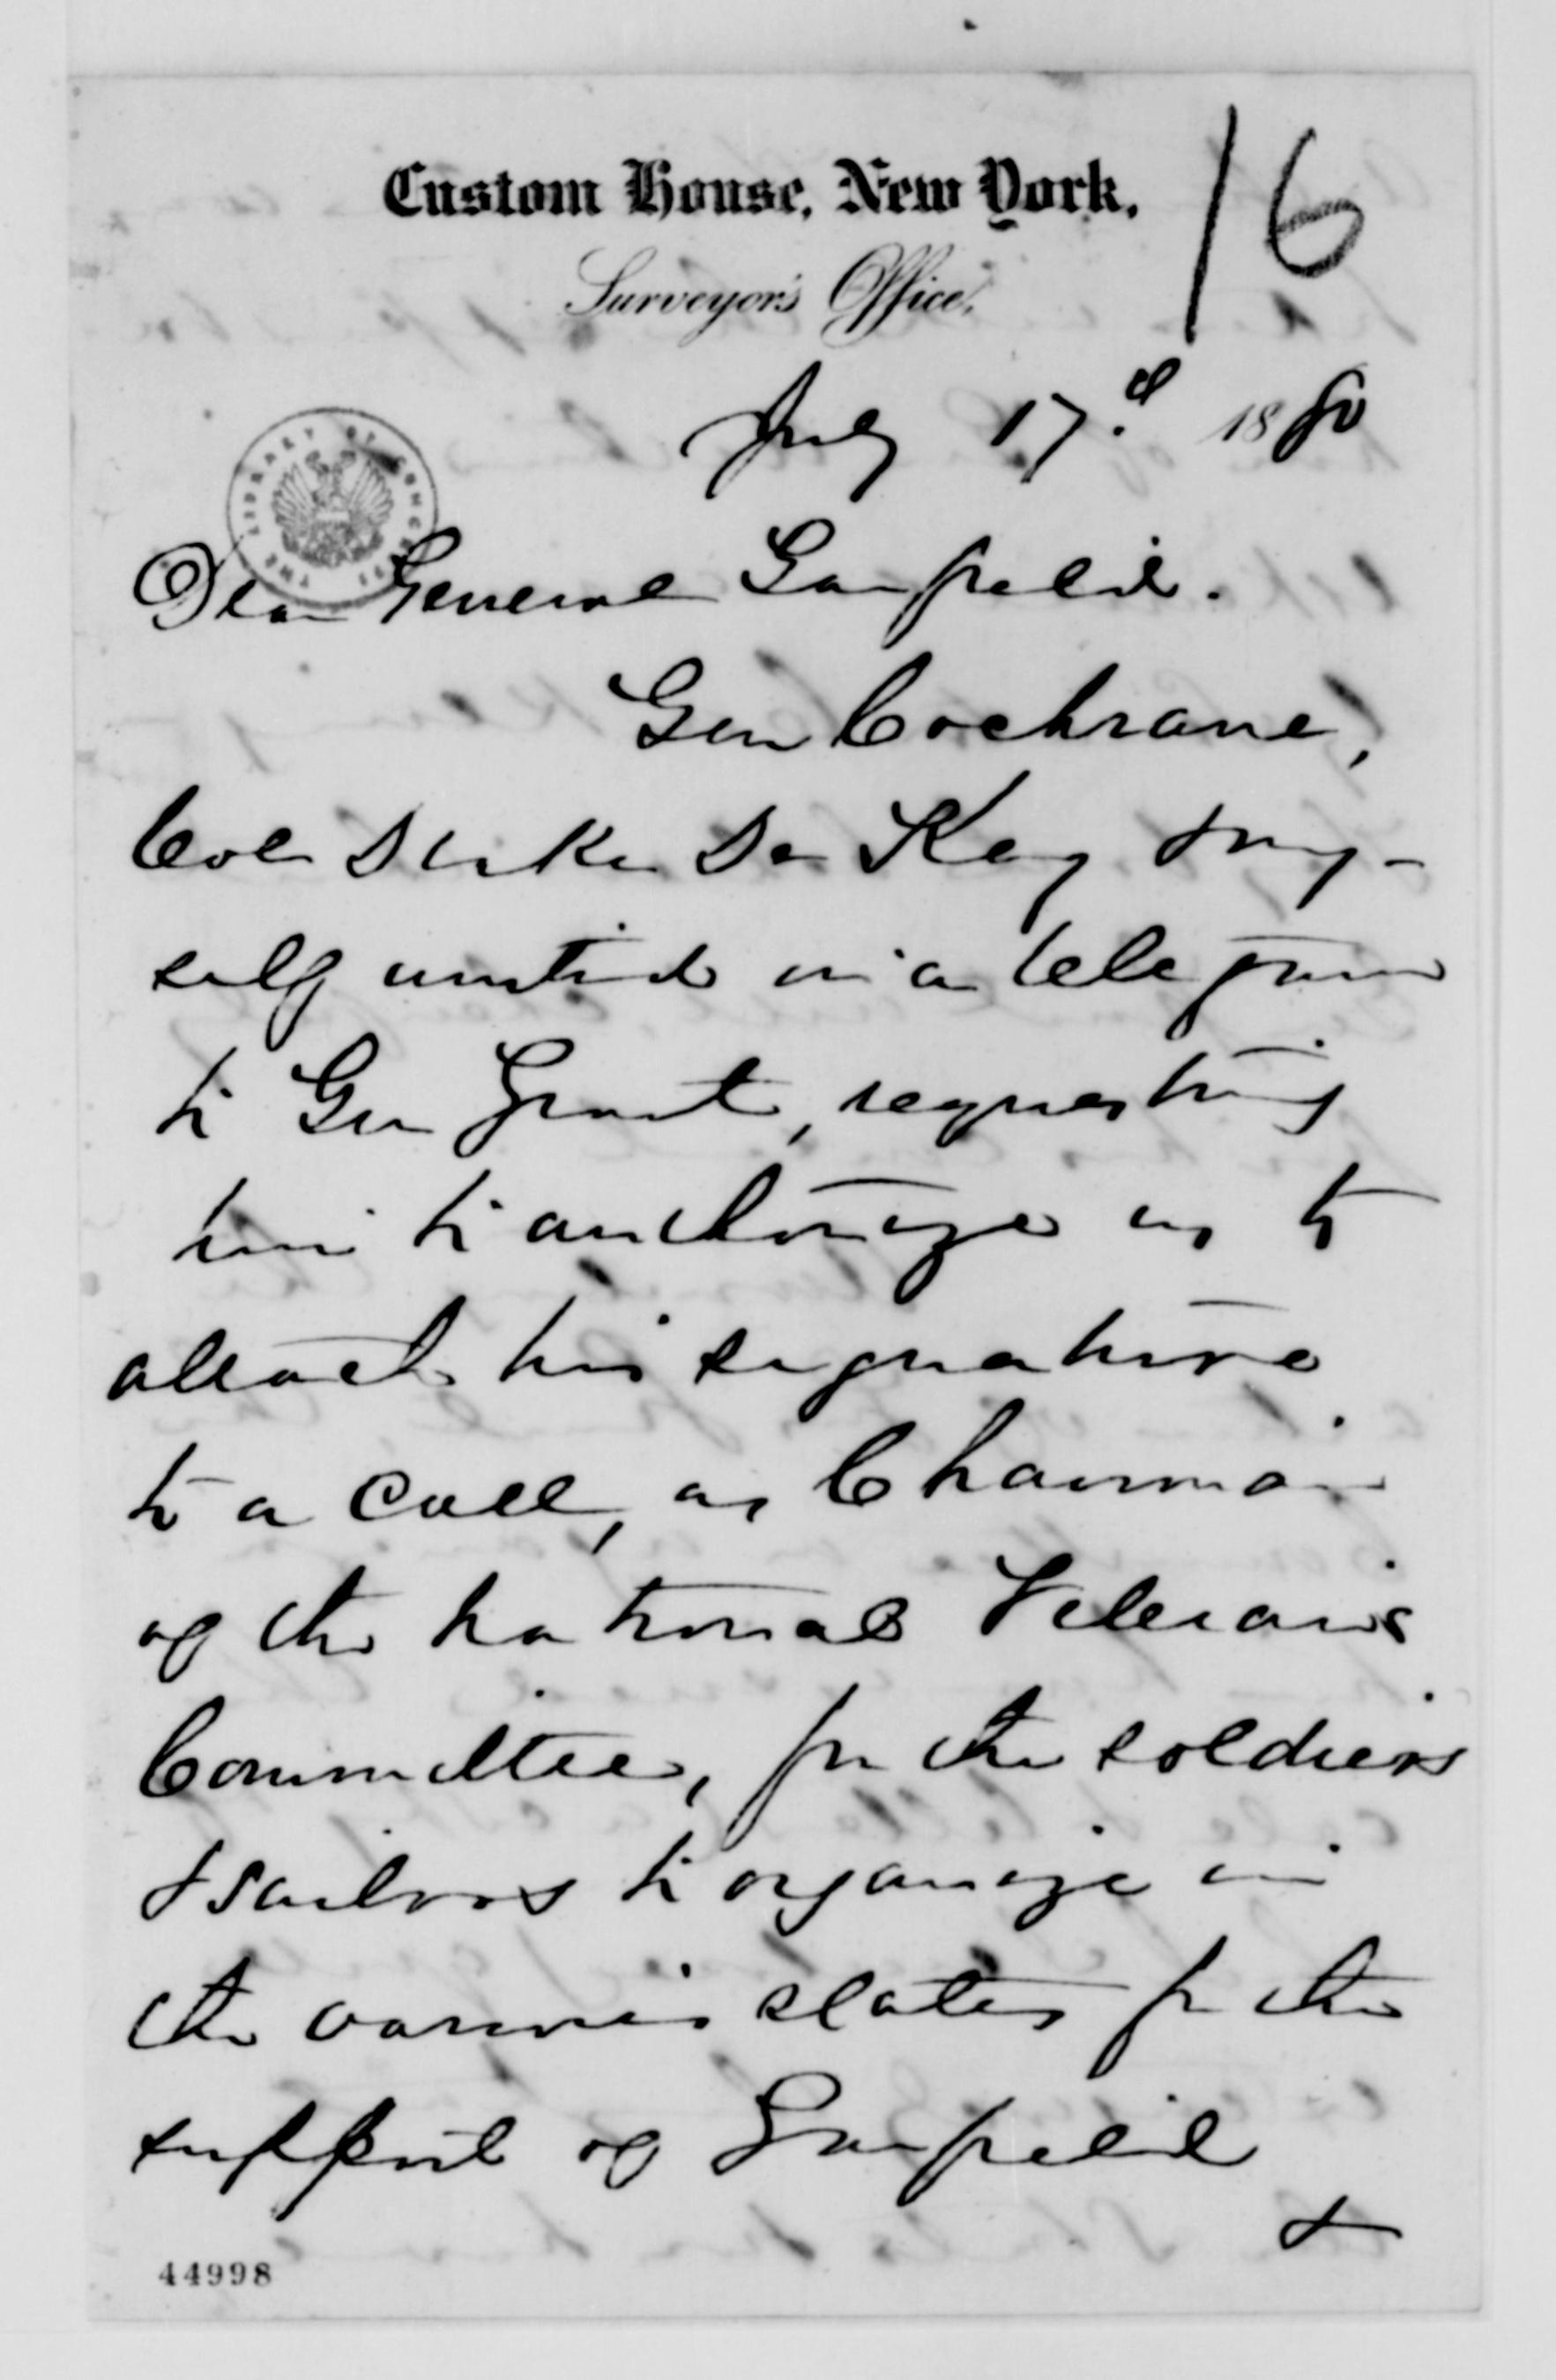 16
Custom House, New York,
Surveyor's Office,
July 17.d 1880
THE LIBRARY OF CONGRESS
Dear General Garfield.
Gen Cochrane,
Col Drake De Kay & my-
self united in a telegram
to Gen Grant, requesting
him to authorize us to
attach his signature
to a call, as Chairman
of the National Veterans
Committee, for the soldiers
& sailors to organize in
the various states for the
support of Garfield
&
44998